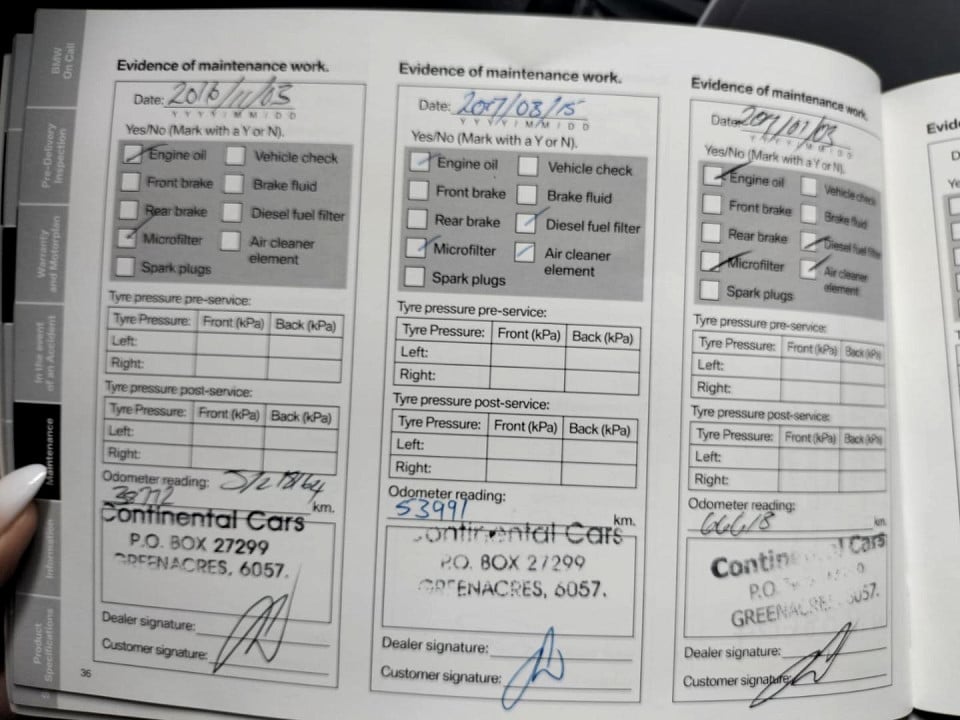 BMW
On Call
Pre-Delivery
Inspection
Warranty
and Motorplan
In the event
of an Accident
Maintenance
Information
Product
Specifications
Evidence of maintenance work.
Date: 2016/11/03
Y Y Y Y / M M / D D
Yes/No (Mark with a Y or N).
Engine oil Vehicle check
Front brake Brake fluid
Rear brake Diesel fuel filter
Microfilter Air cleaner
element
Spark plugs
Tyre pressure pre-service:
Tyre Pressure: Front (kPa) Back (kPa)
Left:
Right:
Tyre pressure post-service:
Tyre Pressure: Front (kPa) Back (kPa)
Left:
Right:
Odometer reading:
km.
Continental Cars
P.O. BOX 27299
GREENACRES, 6057.
Dealer signature:
Customer signature:
36
Evidence of maintenance work.
Date: 2017/03/15
Y Y Y Y / M M / D D
Yes/No (Mark with a Y or N).
Engine oil Vehicle check
Front brake Brake fluid
Rear brake Diesel fuel filter
Microfilter Air cleaner
element
Spark plugs
Tyre pressure pre-service:
Tyre Pressure: Front (kPa) Back (kPa)
Left:
Right:
Tyre pressure post-service:
Tyre Pressure: Front (kPa) Back (kPa)
Left:
Right:
Odometer reading:
53991 km.
Continental Cars
P.O. BOX 27299
GREENACRES, 6057.
Dealer signature:
Customer signature:
Evidence of maintenance work.
Date:
Y Y Y Y / M M / D D
Yes/No (Mark with a Y or N).
Engine oil Vehicle check
Front brake Brake fluid
Rear brake Diesel fuel filter
Microfilter Air cleaner
element
Spark plugs
Tyre pressure pre-service:
Tyre Pressure: Front (kPa) Back (kPa)
Left:
Right:
Tyre pressure post-service:
Tyre Pressure: Front (kPa) Back (kPa)
Left:
Right:
Odometer reading:
66613 km.
Contin l Cars
P.O.
GREENACRE 6057.
Dealer signature:
Customer signature:
Evide